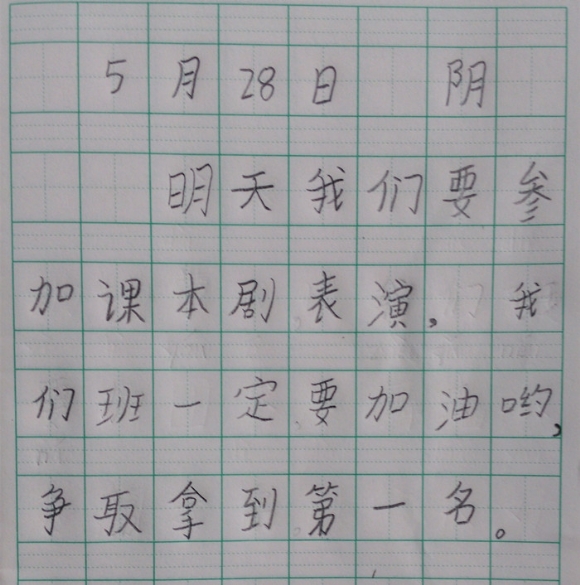 5月28日 阴
明天我们要参
加课本剧表演，我
们班一定要加油哟，
争取拿到第一名。